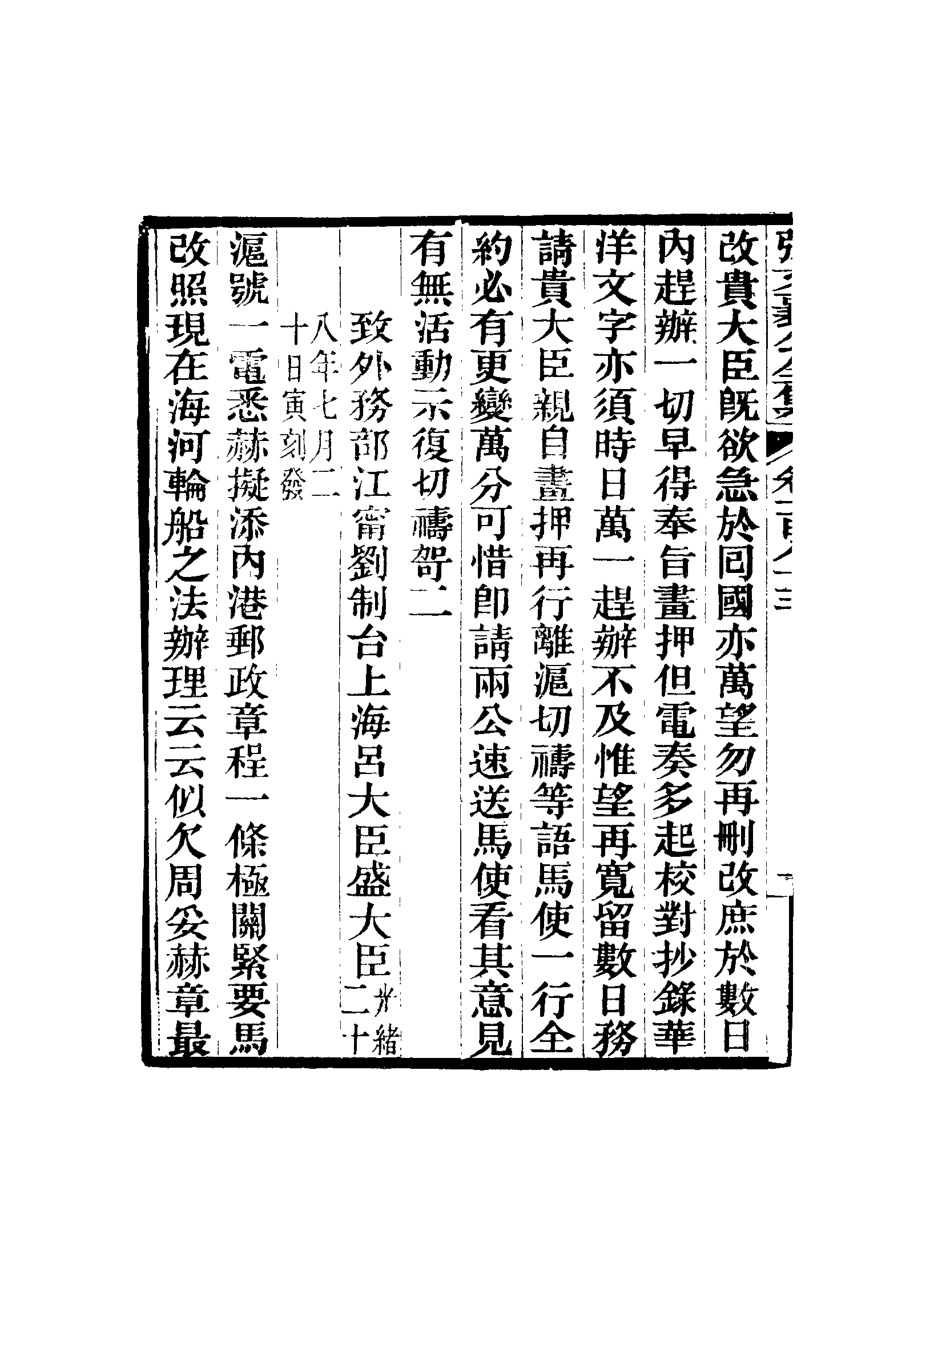 改貴大臣既欲急於囘國亦萬望勿再刪改庶於數日
內趕辦一切早得奉旨畫押但電奏多起校對抄錄華
洋文字亦須時日萬一趕辦不及惟望再寬留數日務
請貴大臣親自畫押再行離滬切禱等語馬使一行全
約必有更變萬分可惜卽請兩公速送馬使看其意見
有無活動示復切禱哿二
致外務部江甯劉制台上海呂大臣盛大臣光緒二十
八年七月二
十日寅刻發
滬號一電悉赫擬添內港郵政章程一條極關緊要馬
改照現在海河輪船之法辦理云云似欠周妥赫章最